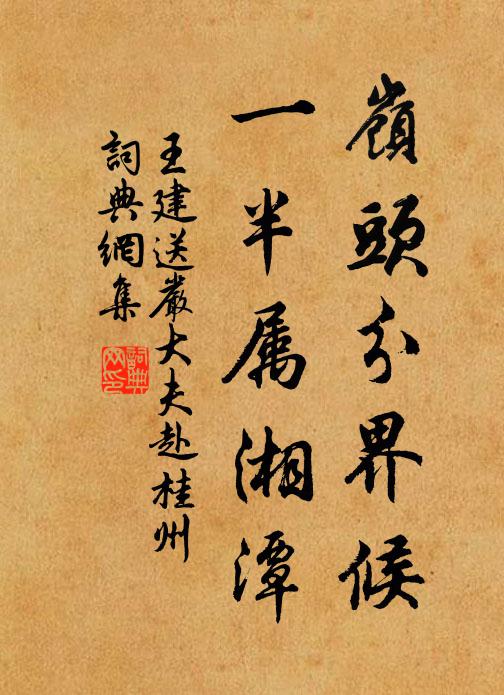 嶺頭分界候
一半属湘潭
王建送嚴大夫赴桂州
詞典網集
詞典網印